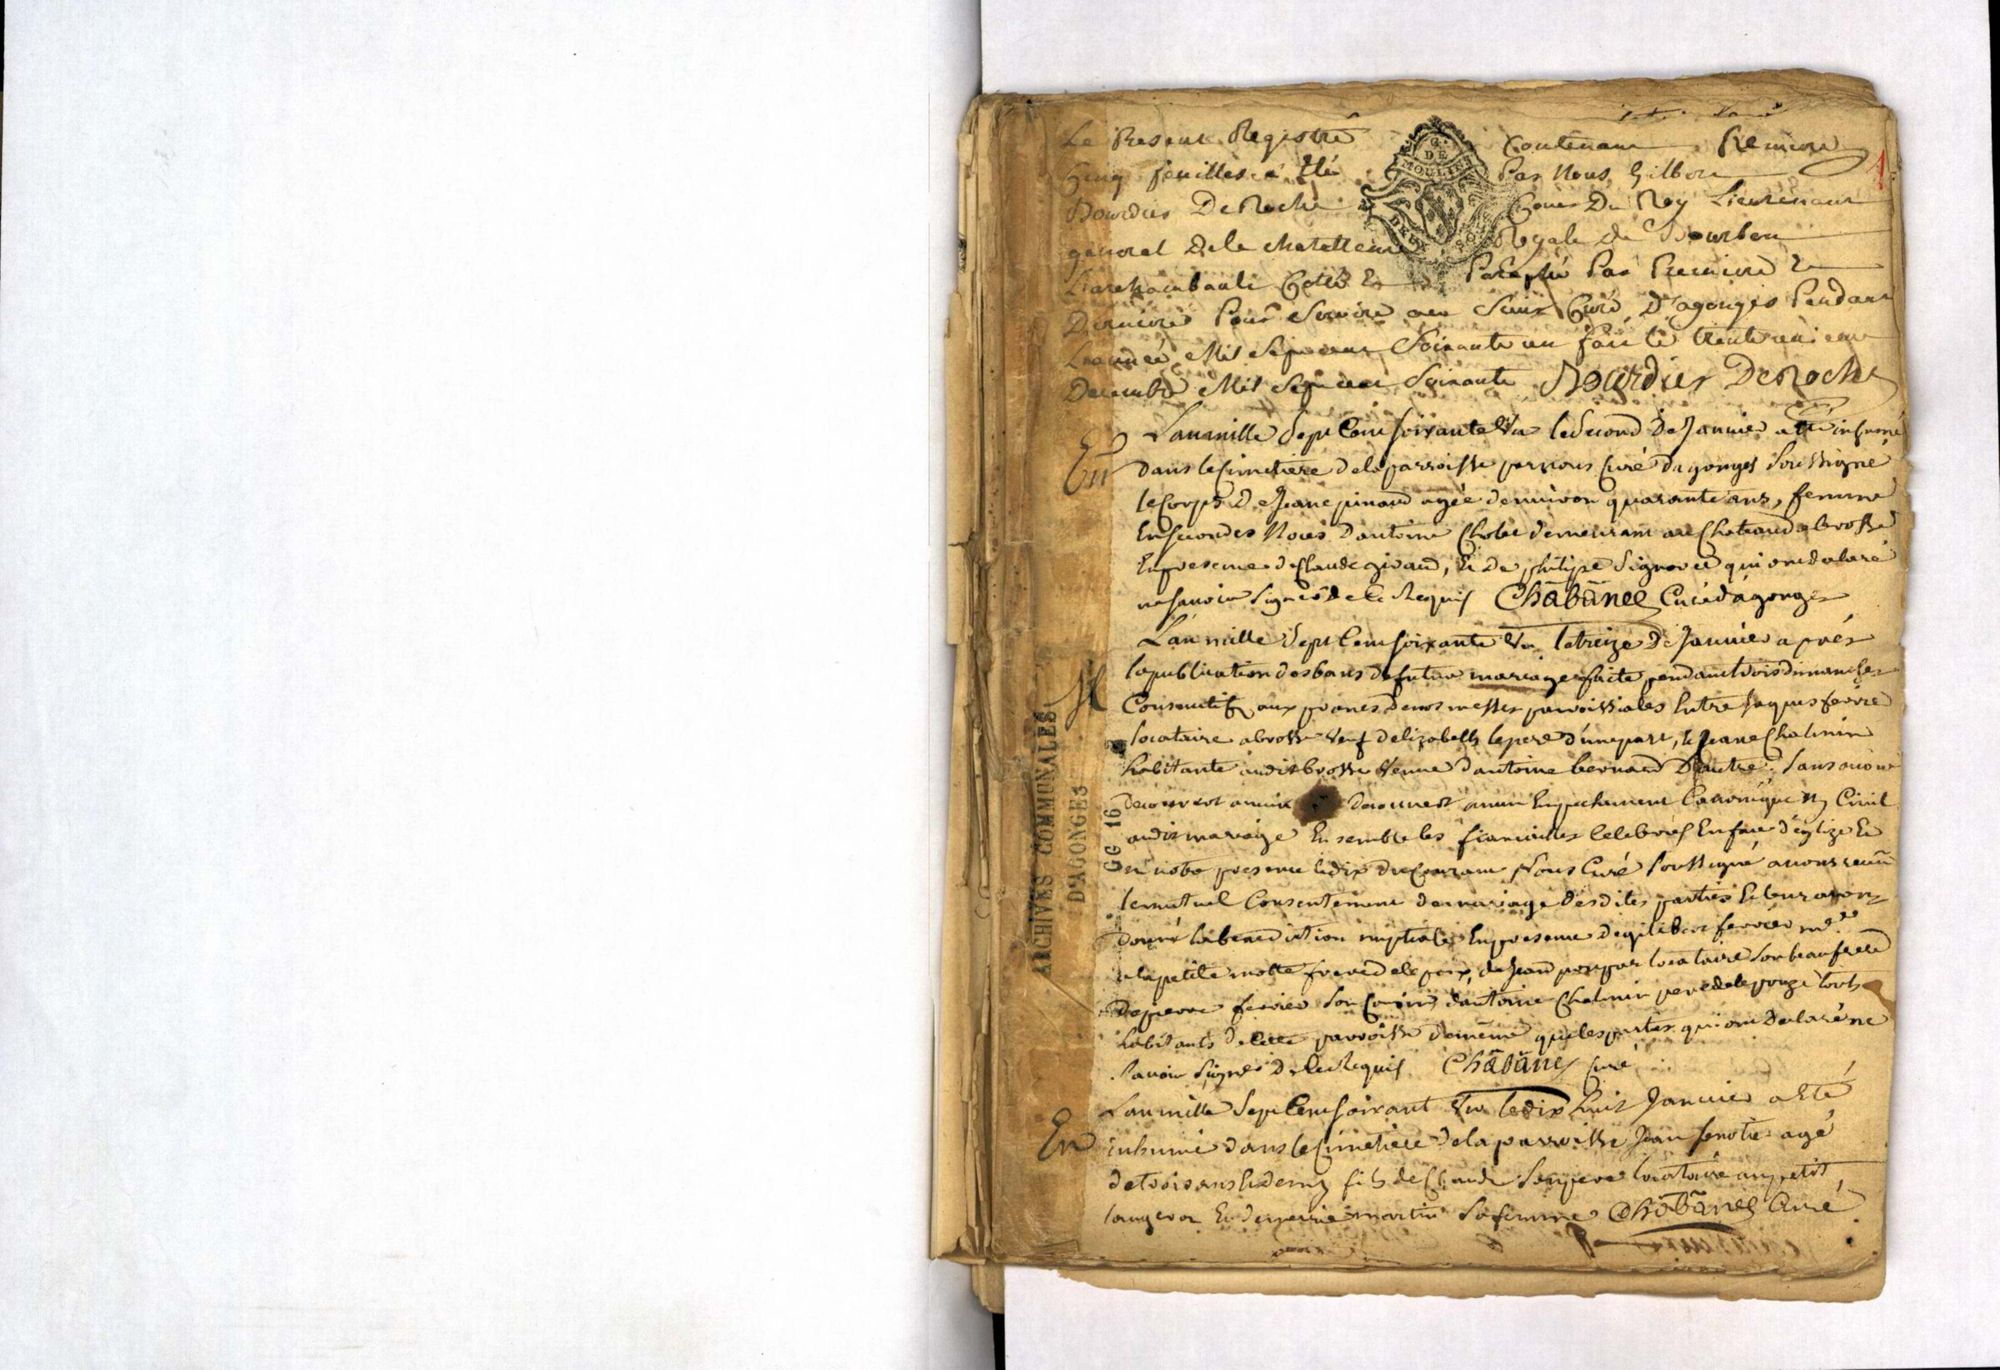 Le Present Registre Contenant
feuilles a Eté Par Nous Gilbert
Bourdier DeRoche Du Roy Lieutenant
general De la chatellenie Royale de Bourbon
Larchambault Cotté & Paraphé Par Premiere &
Derniere Pour Servire au Sieur Curé D'agonges Pendant
Lannée Mil Sept cent Soixante un fait le trente un
Decembre Mil Sept cent Soixante Bourdier DeRoche
1
G. DE MOULINS
DEUX SOLS
En
L'an mille Sept Cent soixante Un le Second De Janvier a été inhumé
dans le Cimetiere de la parroisse par nous Curé d'agonges Soussigné
le Corps De Jeane pinaud agée d'environ quarante ans, femme
En secondes Noces D'antoine demeurant au Chateau de brosse
En presence de Claude giraud, Et De philipe qui ont declaré
ne savoir Signer de ce Requis Chabanel Curé d'agonges
M
L'an mille Sept Cent soixante Un le treize De Janvier après
la publication des bans de futur mariage faite pendant trois dimanches
Consecutifs aux prones de nos messes parroissiales Entre Jaques ferrier
locataire a brosse Veuf d'elizabeth lepere d'une part, Et Jeane Chalmin
habitante audit brosse Veuve d'antoine bernard D'autre. Sans avoir
decouvert aucun Empechement Canonique ny Civil
audit mariage Ensemble les fiancailles Celebrées En face d'eglize Et
en notre presence le dix du Courrant Nous Curé Soussigné avons reçu
le mutuel Consentement de mariage desdites parties Et leur avons
donné la benediction nuptiale En presence de gilbert ferrier
a la petite motte frere de l'epoux, de Jean locataire Son beaufrere
De pierre ferrier Son Cousin d'antoine Chalmin pere de l'epouze touts
habitants de Cette parroisse de meme que les parties qui ont Declaré ne
Savoir Signer De Ce Requis Chabanel Curé
En
L'an mille Sept Cent soixant Un le dix huit Janvier a Eté
inhumé dans le Cimetiere de la parroisse Jean agé
de trois ans Et demy fils de Claude locataire au petit
Et de martin Sa femme Chabanel Curé
ARCHIVES COMMUNALES
D'AGONGES
GG 16